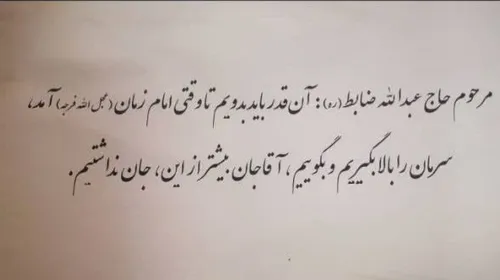 مرحوم حاج عبدالله ضابط (ره) : آن قدر باید بدویم تا وقتی امام زمان (عجل الله فرجه) آمد،
سرمان را بالا بگیریم و بگوییم ، آقا جان بیشتر از این، جان نداشتیم.